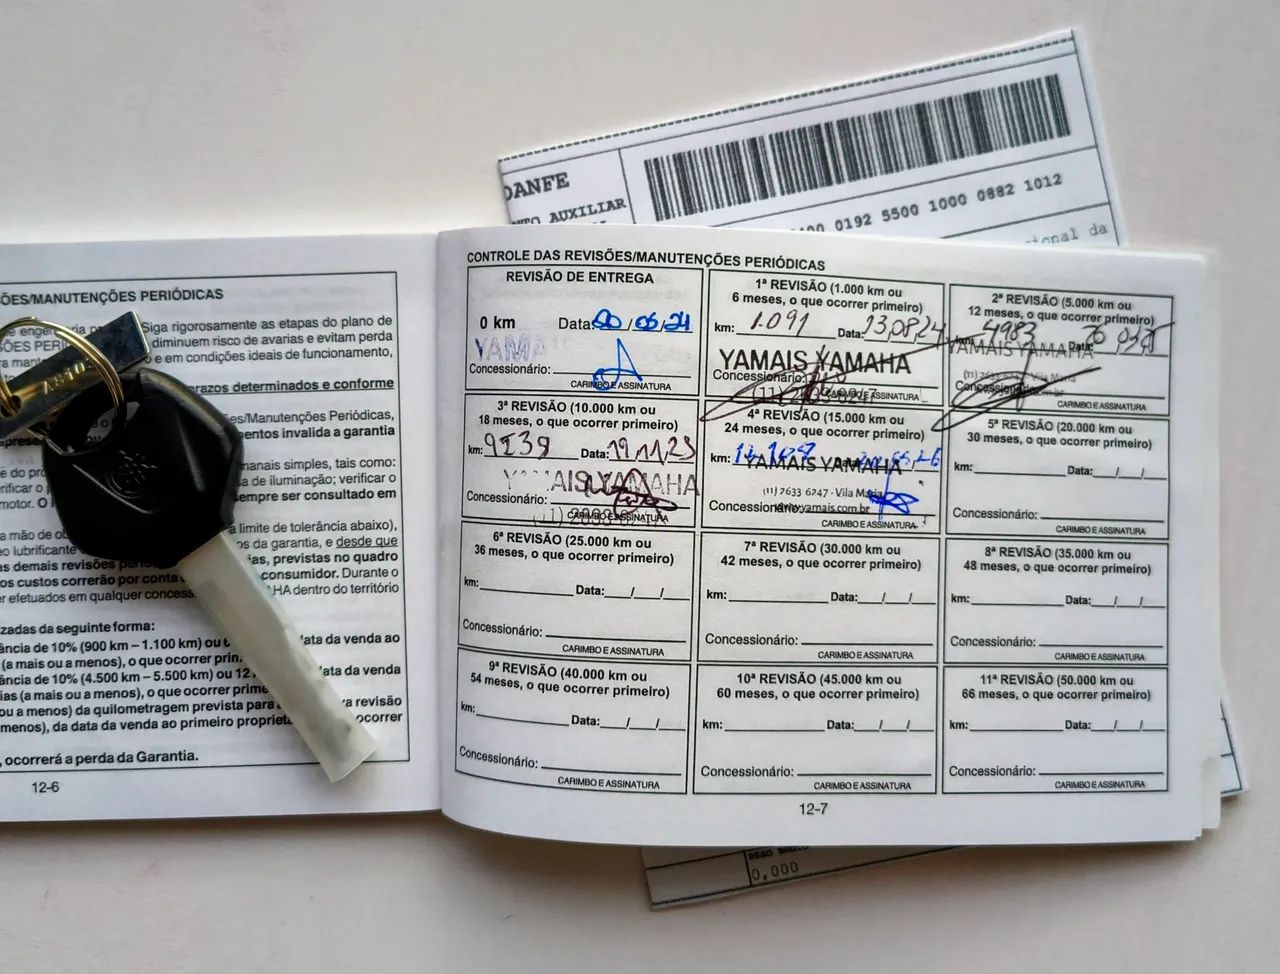 DANFE
AUXILIAR
0192 5500 1000 0882 1012
ional da
ÕES/MANUTENÇÕES PERIÓDICAS
Siga rigorosamente as etapas do plano de
diminuem risco de avarias e evitam perda
e em condições ideais de funcionamento,
prazos determinados e conforme
Revisões/Manutenções Periódicas,
invalida a garantia
manais simples, tais como:
de iluminação; verificar o
sempre ser consultado em
a mão de
a limite de tolerância abaixo),
eo lubrificante
os da garantia, e desde que
as demais revisões
previstas no quadro
os custos correrão por conta
consumidor. Durante o
er efetuados em qualquer
dentro do território
zadas da seguinte forma:
ância de 10% (900 km – 1.100 km) ou
data da venda ao
(a mais ou a menos), o que ocorrer
ância de 10% (4.500 km - 5.500 km) ou
data da venda
ias (a mais ou a menos), o que ocorrer
revisão
ou a menos) da quilometragem prevista para
menos), da data da venda ao primeiro
ocorrer
, ocorrerá a perda da Garantia.
12-6
CONTROLE DAS REVISÕES/MANUTENÇÕES PERIÓDICAS
REVISÃO DE ENTREGA
0 km Data: /06/24
YAMA
Concessionário:
CARIMBO E ASSINATURA
1ª REVISÃO (1.000 km ou
6 meses, o que ocorrer primeiro)
km: 1.091 Data: 13/08/24
YAMAIS YAMAHA
Concessionário:
CARIMBO E ASSINATURA
2ª REVISÃO (5.000 km ou
12 meses, o que ocorrer primeiro)
km: 4983 Data:
YAMAIS YAMAHA
(11) 2633 6247 - Vila Maria
Concessionário:
CARIMBO E ASSINATURA
3ª REVISÃO (10.000 km ou
18 meses, o que ocorrer primeiro)
km: Data:
YAMAIS YAMAHA
Concessionário:
CARIMBO E ASSINATURA
4ª REVISÃO (15.000 km ou
24 meses, o que ocorrer primeiro)
km:
YAMAIS YAMAHA
(11) 2633 6247 - Vila Maria
Concessionário: www.yamais.com.br
CARIMBO E ASSINATURA
5ª REVISÃO (20.000 km ou
30 meses, o que ocorrer primeiro)
km: Data: / /
Concessionário:
CARIMBO E ASSINATURA
6ª REVISÃO (25.000 km ou
36 meses, o que ocorrer primeiro)
km: Data: / /
Concessionário:
CARIMBO E ASSINATURA
7ª REVISÃO (30.000 km ou
42 meses, o que ocorrer primeiro)
km: Data: / /
Concessionário:
CARIMBO E ASSINATURA
8ª REVISÃO (35.000 km ou
48 meses, o que ocorrer primeiro)
km: Data: / /
Concessionário:
CARIMBO E ASSINATURA
9ª REVISÃO (40.000 km ou
54 meses, o que ocorrer primeiro)
km: Data: / /
Concessionário:
CARIMBO E ASSINATURA
10ª REVISÃO (45.000 km ou
60 meses, o que ocorrer primeiro)
km: Data: / /
Concessionário:
CARIMBO E ASSINATURA
11ª REVISÃO (50.000 km ou
66 meses, o que ocorrer primeiro)
km: Data: / /
Concessionário:
CARIMBO E ASSINATURA
12-7
0,000